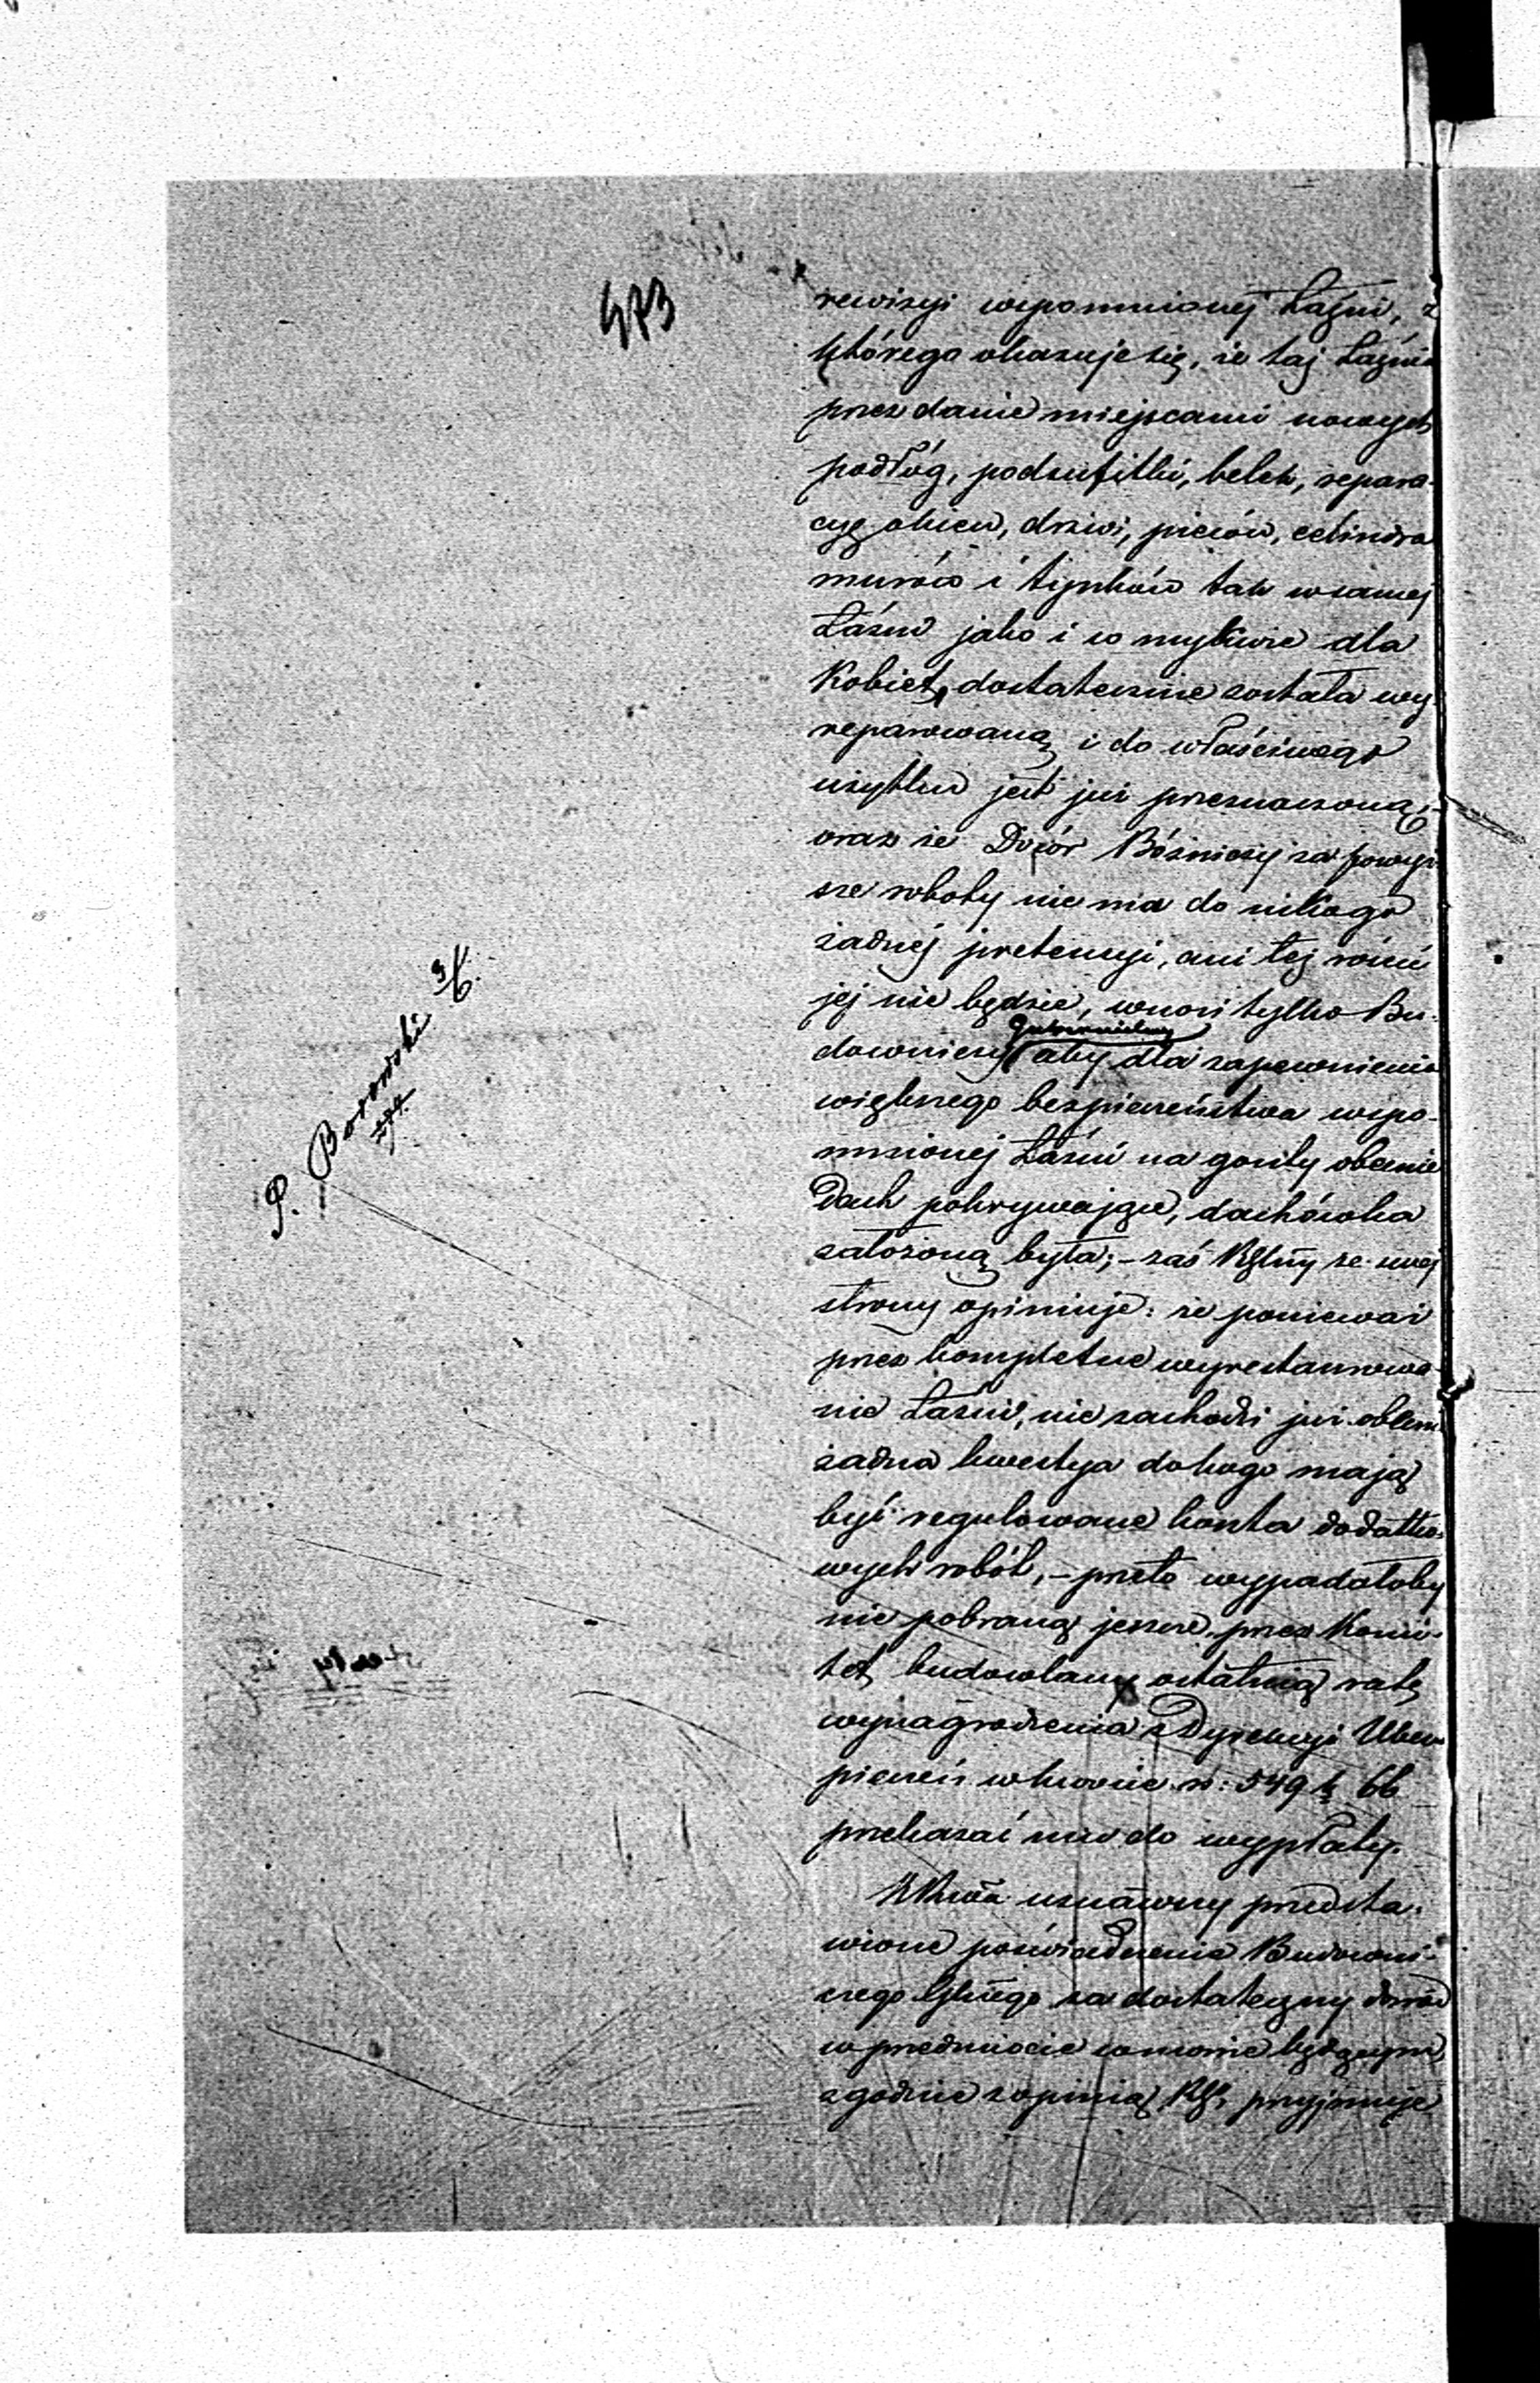 473
rewizyi wspomnionej Łaźni, z
którego okazuje się, że taż Łaźnia
przez danie miejscami nowych
podłóg, podsufitki, belek, repara-
cyą okien, drzwi, pieców, celindra
murów i tynków tak w samej
Łaźni jako i w mykwie dla
Kobiet, dostatecznie została wy-
reparowaną i do właściwego
użytku jest już przeznaczoną;
oraz że Dozór Bóżniczy za powyż-
sze roboty nie ma do nikogo
żadnéj pretensyi, ani téj rościć
jej nie będzie, wnosi tylko Bu-
downiczy Gubernialny aby dla zapewnienia
większego bezpieczeństwa wspo-
mnionej Łaźni na gonty obecnie
Dach pokrywające, dachówka
założoną była; – zaś ze swej
strony opiniuje: że ponieważ
przez kompletne wyrestaurowa-
nie Łaźni, nie zachodzi już obecnie
żadna kwestya do kogo mają
być regulowane konta dodatko-
wych robót, – przeto wypadałoby
nie pobraną jeszcze przez Komi-
tet budowlany ostatnią ratę
wynagrodzenia z Dyrekcyi Ubez-
pieczeń w kwocie rs: 549 k 66
przekazać mu do wypłaty.
uznawszy przedsta-
wione poświadczenie Budowni-
czego za dostateczny dowód
w przedmiocie w mowie będącym,
zgodnie z opinią przyjmuje
P. Borowski 3/6